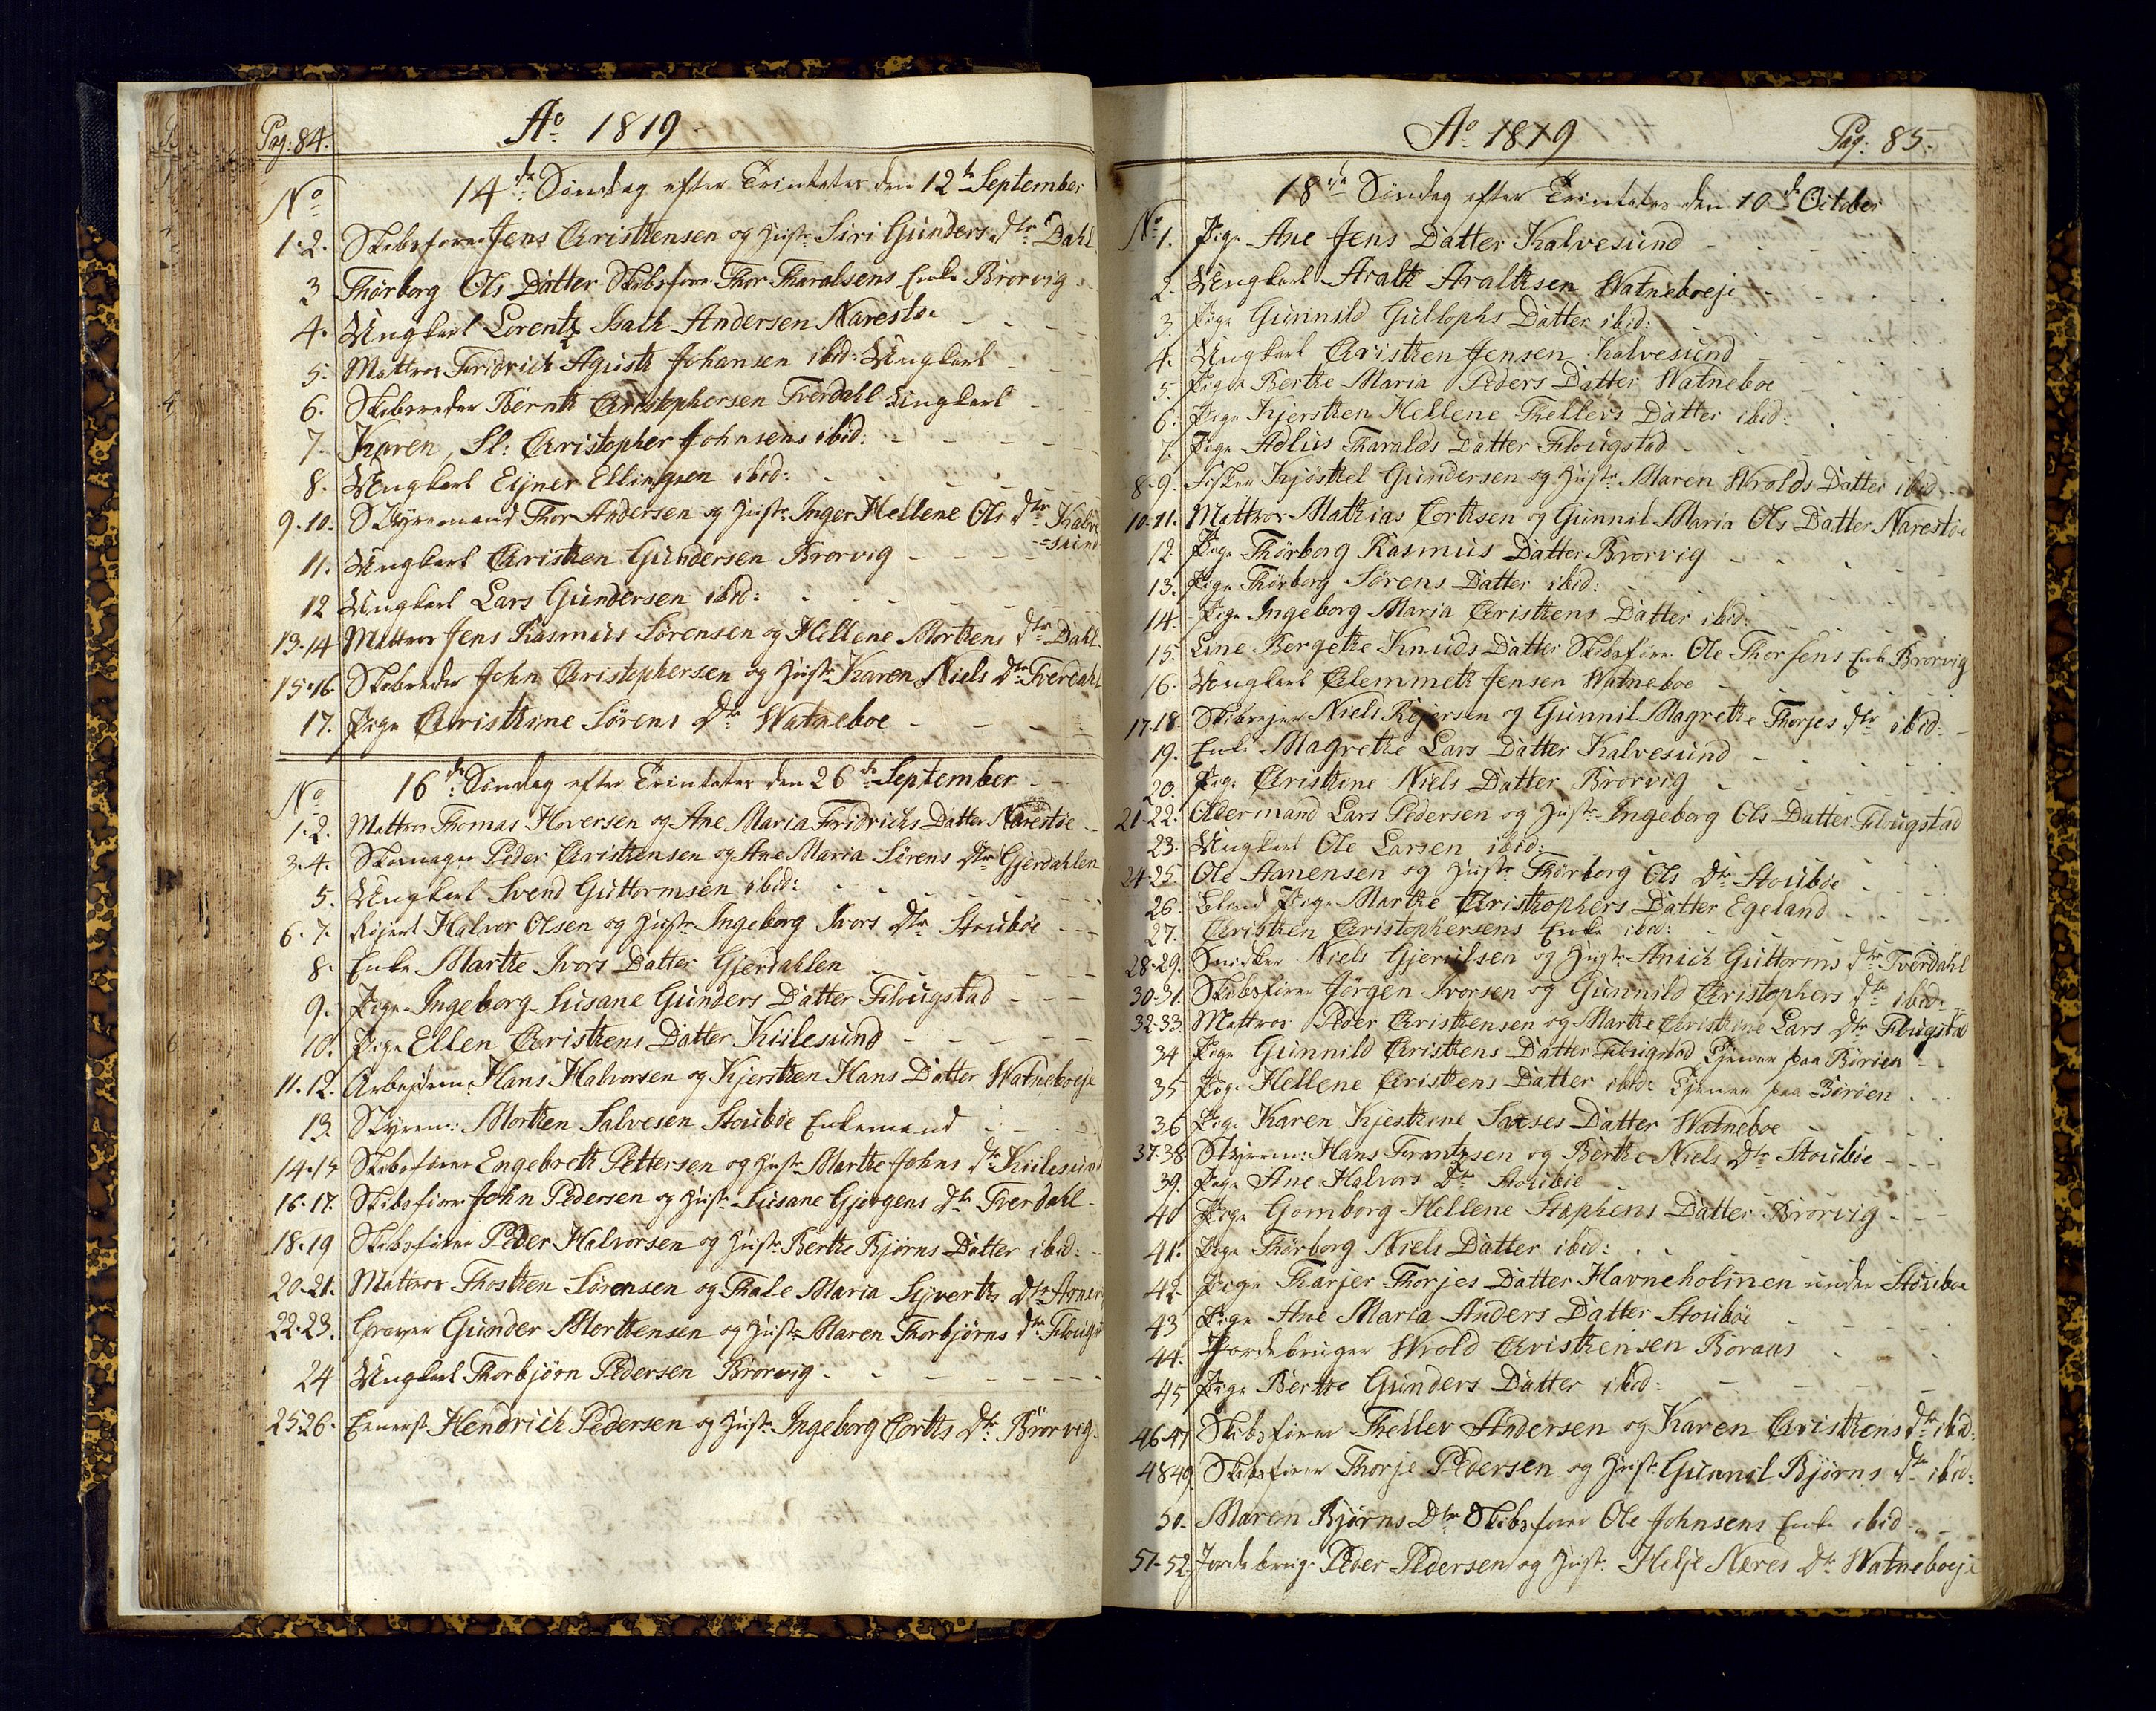 Pag: 84.
Ao 1819
No
14de Søndag efter Trinitates den 12te September
1-2. Skibsfører Jens Christensen og Hustr: Siri Gunders dtr Dahl
3 Thorborg Ols Datter Skibsfører Thor Tharalsens Enke Brorvig
4. Ungkarl Lorentz Isach Andersen Narestøe
5. Mattros Fridrich Agust Johansen ibid: Ungkarl
6. Skibsreder Bernt Christophersen Tverdahl Ungkarl
7. Karen, Sl: Christopher Johnsens ibid:
8. Ungkarl Eyner Ellingsen ibid:
9-10. Styremand Thor Andersen og Hustr: Inger Hellene Ols dtr Kalve
=sund
11. Ungkarl Christen Gundersen Brorvig
12 Ungkarl Lars Gundersen ibid:
13-14 Mattros Jens Rasmus Sørensen og Hellene Mortens dtr Dahl
15-16. Skibsreder John Christophersen og Hustr: Karen Niels Dtr Tverdahl
17. Pige Christine Sørens Dtr Watneboe
No
16de Søndag efter Trinitates den 26de September
1-2. Mattros Thomas Hoversen og Ane Maria Fridrichs Datter Narestøe
3-4. Skomager Peder Christensen og Ane Maria Sørens Dtr Gjerdahlen
5. Ungkarl Svend Guttormsen ibid:
6-7. Halvor Olsen og Hustr: Ingeborg Ivors Dtr Stoubøe
8. Enke Marthe Ivors Datter Gjerdahlen
9. Pige Ingeborg Susane Gunders Datter Flougstad
10. Pige Ellen Christens Datter Kiilesund
11-12. Arbejdsm: Hans Halvorsen og Kjersten Hans Datter Watneboeje
13. Styrem: Morten Salvesen Stoubøe Enkemand
14-15 Skibsfører Engebreth Pettersen og Hustr: Marthe Johns dtr Kiilesund
16-17. Skibsfører John Pedersen og Hustr: Susane Gjørgens Dtr Tverdahl
18-19 Skibsfører Peder Halvorsen og Hustr: Berthe Bjørns Datter ibid:
20-21. Matros Thosten Sørensen og Thale Maria Syverts Dtr
22-23. Graver Gunder Mortensen og Hustr: Maren Thorbjørns dtr
24 Ungkarl Thorbjørn Pedersen Brorvig
25-26. Hendrich Pedersen og Hustr: Ingeborg Corts Dtr Brorvig
Ao 1819
Pag: 85.
18de Søndag efter Trinitates den 10de October
No 1. Pige Ane Jens Datter Kalvesund
2. Ungkarl Aralt Araltsen Watneboeje
3. Pige Gunnild Gullophs Datter ibid:
4. Ungkarl Christen Jensen Kalvesund
5. Pige Berthe Maria Peders Datter Watneboe
6. Pige Kjersten Hellene Thellevs Datter ibid:
7. Pige Adlus Tharalds Datter Flougstad
8-9. Fisker Kjøstel Gundersen og Hustr: Maren Wrolds Datter ibid
10-11. Mattros Mathias Cortsen og Gunnil Maria Ols Datter Narestøe
12. Pige Thorborg Rasmus Datter Brorvig
13. Pige Thorborg Sørens Datter ibid:
14. Pige Ingeborg Maria Christens Datter ibid:
15. Line Bergethe Knuds Datter Skibsfører Ole Thorsens Enke Brorvig
16. Ungkarl Clemmet Jensen Watneboe
17-18. Skibsejer Niels Rejersen og Gunnil Magrethe Thorjes dtr ibid:
19. Enke Magrethe Lars Datter Kalvesund
20. Pige Christine Niels Datter Brorvig
21-22. Oldermand Lars Pedersen og Hustr: Ingeborg Ols Datter Flougstad
23. Ungkarl Ole Larsen ibid:
24-25 Ole Aanensen og Hustr: Thorborg Ols Dtr Stoubøe
26. Blind Pige Marthe Christophers Datter Egeland
27. Christen Christophersens Enke ibid:
28-29. Snidker Niels Gjerulsen og Hustr: Anich Guttorms dtr Tverdahl
30-31. Skibsfører Jørgen Ivorsen og Gunnild Christophers dtr ibid:
32-33. Mattros Peder Christensen og Marthe Christine Lars Dtr Flougstad
34 Pige Gunnild Christens Datter Flougstad Tjener paa Borøen
35 Pige Hellene Christens Datter ibid: Tjener paa Borøen
36 Pige Karen Kjestine Datter Watneboe
37-38 Styrem: Hans Frantzsen og Berthe Niels Dtr Stoubøe
39. Pige Ane Halvors Dtr Stoubøe
40 Pige Gomborg Hellene Stephens Datter Brorvig
41. Pige Thorborg Niels Datter ibid:
42. Pige Tharjer Thorjes Datter Havneholmen under Stouboe
43 Pige Ane Maria Anders Datter Stoubøe
44. Jordebruger Wrold Christensen Boraas
45 Pige Berthe Gunders Datter ibid:
46-47 Skibsfører Thellev Andersen og Karen Christens dtr ibid:
48-49. Skibsfører Thorje Pedersen og Hustr: Gunnil Bjørns dtr ibid:
50. Maren Bjørns Dtr Skibsfører Ole Johnsens Enke ibid
51-52. Jordebrug: Peder Pedersen og Hustr: Helje Næres Dtr Watneboeje